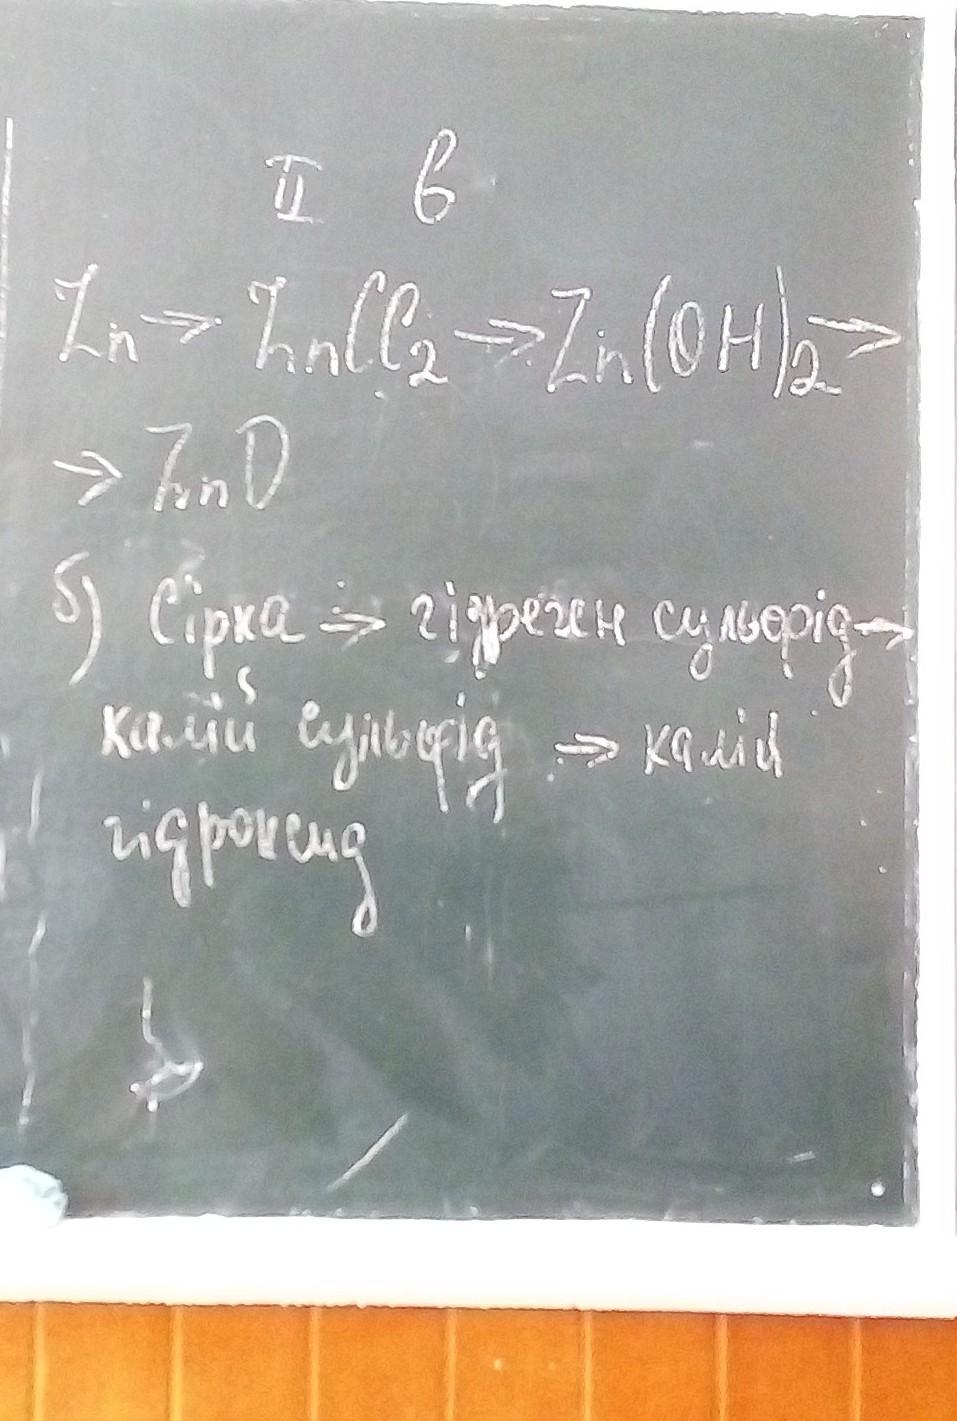 II в
Zn → ZnCl₂ → Zn(OH)₂ →
→ ZnO
б) Сірка → гідроген сульфід →
калій сульфід → калій
гідроксид